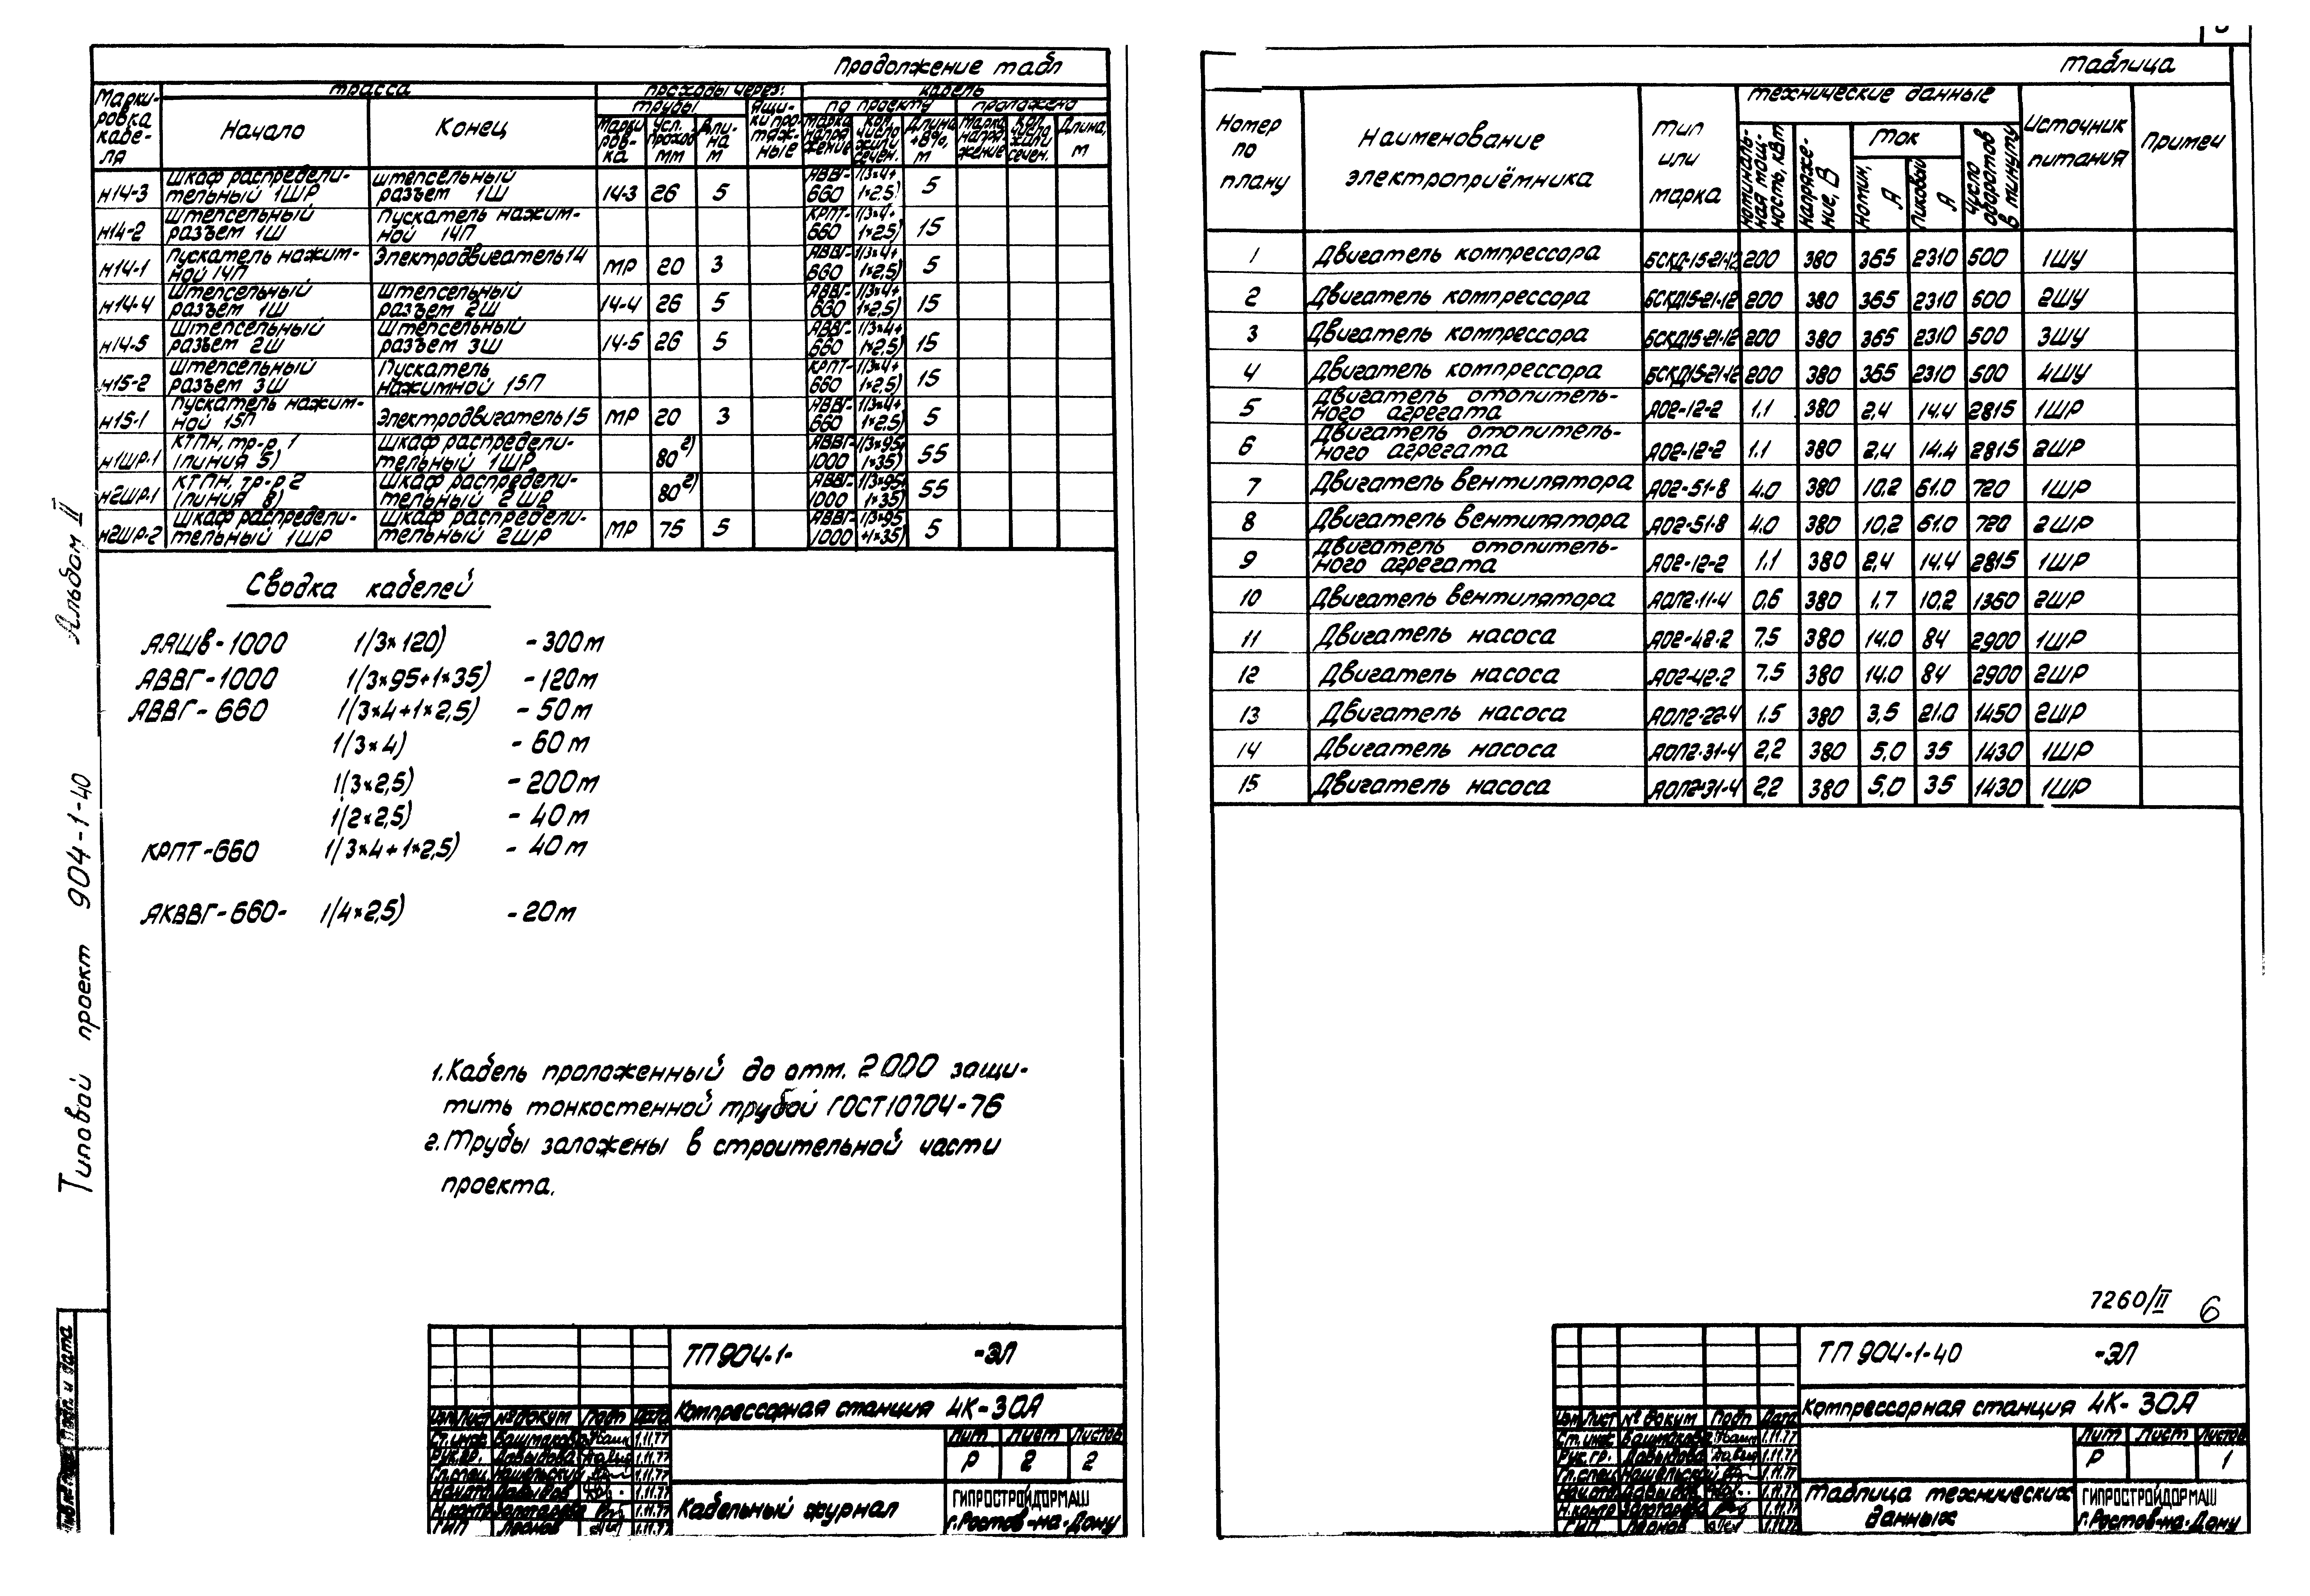 Продолжение табл
Марки-
ровка
кабе-
ля
трасса
Начало
Конец
проходы через:
трубы
Марки
ров-
ка
Усл.
проход
мм
Дли-
на
м
Ящи-
ки про-
тяж-
ные
кабель
по проекту
Марка
напря
жение
Кол.
число
жил и
сечен.
Длина
+8%,
м
проложено
Марка
напря-
жение
Кол.
число
жил и
сечен.
Длина,
м
н14-3 Шкаф распредели-тельный 1ШР Штепсельный разъем 1Ш 14-3 26 5 АВВГ-660 1(3×4+1×2,5) 5
н14-2 Штепсельный разъем 1Ш Пускатель нажим-ной 14П КРПТ-660 1(3×4+1×2,5) 15
н14-1 Пускатель нажим-ной 14П Электродвигатель 14 МР 20 3 АВВГ-660 1(3×4+1×2,5) 5
н14-4 Штепсельный разъем 1Ш Штепсельный разъем 2Ш 14-4 26 5 АВВГ-660 1(3×4+1×2,5) 15
н14-5 Штепсельный разъем 2Ш Штепсельный разъем 3Ш 14-5 26 5 АВВГ-660 1(3×4+1×2,5) 15
н15-2 Штепсельный разъем 3Ш Пускатель нажимной 15П КРПТ-660 1(3×4+1×2,5) 15
н15-1 Пускатель нажим-ной 15П Электродвигатель 15 МР 20 3 АВВГ-660 1(3×4+1×2,5) 5
н1ШР-1 КТПН, тр-р 1 (линия 5) Шкаф распредели-тельный 1ШР 80 2) АВВГ-1000 1(3×95+1×35) 55
н2ШР-1 КТПН, тр-р 2 (линия 8) Шкаф распредели-тельный 2ШР 80 2) АВВГ-1000 1(3×95+1×35) 55
н2ШР-2 Шкаф распредели-тельный 1ШР Шкаф распредели-тельный 2ШР МР 75 5 АВВГ-1000 1(3×95+1×35) 5
Сводка кабелей
ААШв-1000 1(3×120) - 300м
АВВГ-1000 1(3×95+1×35) - 120м
АВВГ-660 1(3×4+1×2,5) - 50м
1(3×4) - 60м
1(3×2,5) - 200м
1(2×2,5) - 40м
КРПТ-660 1(3×4+1×2,5) - 40м
АКВВГ-660- 1(4×2,5) - 20м
1. Кабель проложенный до отм. 2000 защи-
тить тонкостенной трубой ГОСТ 10704-76
2. Трубы заложены в строительной части
проекта.
Типовой проект 904-1-40 Альбом II
Подп. и дата
ТП 904-1- -ЭЛ
Компрессорная станция 4К-30А
Изм Лист № докум Подп Дата
Ст.инж. Башмакова 1.11.77
Рук.гр. Давыдова 1.11.77
Гл.спец 1.11.77
Нач.отд Давыдов 1.11.77
Н.контр Золотарева 1.11.77
ГИП Леонов 1.11.77
Лит Лист Листов
Р 2 2
Кабельный журнал
ГИПРОСТРОЙДОРМАШ
г.Ростов-на-Дону
Таблица
Номер
по
плану
Наименование
электроприёмника
Тип
или
марка
технические данные
номиналь-
ная мощ-
ность, кВт
напряже-
ние, В
Ток
номин,
А
пиковый
А
число
оборотов
в минуту
Источник
питания
Примеч
1 Двигатель компрессора БСКД-15-21-12 200 380 365 2310 500 1ШУ
2 Двигатель компрессора БСКД15-21-12 200 380 365 2310 500 2ШУ
3 Двигатель компрессора БСКД15-21-12 200 380 365 2310 500 3ШУ
4 Двигатель компрессора БСКД15-21-12 200 380 365 2310 500 4ШУ
5 Двигатель отопитель-ного агрегата АО2-12-2 1.1 380 2,4 14.4 2815 1ШР
6 Двигатель отопитель-ного агрегата АО2-12-2 1.1 380 2,4 14.4 2815 2ШР
7 Двигатель вентилятора АО2-51-8 4.0 380 10,2 61.0 720 1ШР
8 Двигатель вентилятора АО2-51-8 4.0 380 10,2 61.0 720 2ШР
9 Двигатель отопитель-ного агрегата АО2-12-2 1.1 380 2,4 14.4 2815 1ШР
10 Двигатель вентилятора АОЛ2-11-4 0,6 380 1.7 10.2 1360 2ШР
11 Двигатель насоса АО2-42-2 7.5 380 14.0 84 2900 1ШР
12 Двигатель насоса АО2-42-2 7,5 380 14.0 84 2900 2ШР
13 Двигатель насоса АОЛ2-22-4 1.5 380 3,5 21.0 1450 2ШР
14 Двигатель насоса АОЛ2-31-4 2,2 380 5.0 35 1430 1ШР
15 Двигатель насоса АОЛ2-31-4 2,2 380 5.0 35 1430 1ШР
7260/II 6
ТП 904-1-40 -ЭЛ
Компрессорная станция 4К-30А
Изм Лист № докум Подп Дата
Ст.инж Башмакова 1.11.77
Рук.гр. Давыдова 1.11.77
Гл.спец 1.11.77
Нач.отд Давыдов 1.11.77
Н.контр Золотарева 1.11.77
ГИП Леонов 1.11.77
Лит Лист Листов
Р 1
Таблица технических
данных
ГИПРОСТРОЙДОРМАШ
г.Ростов-на-Дону